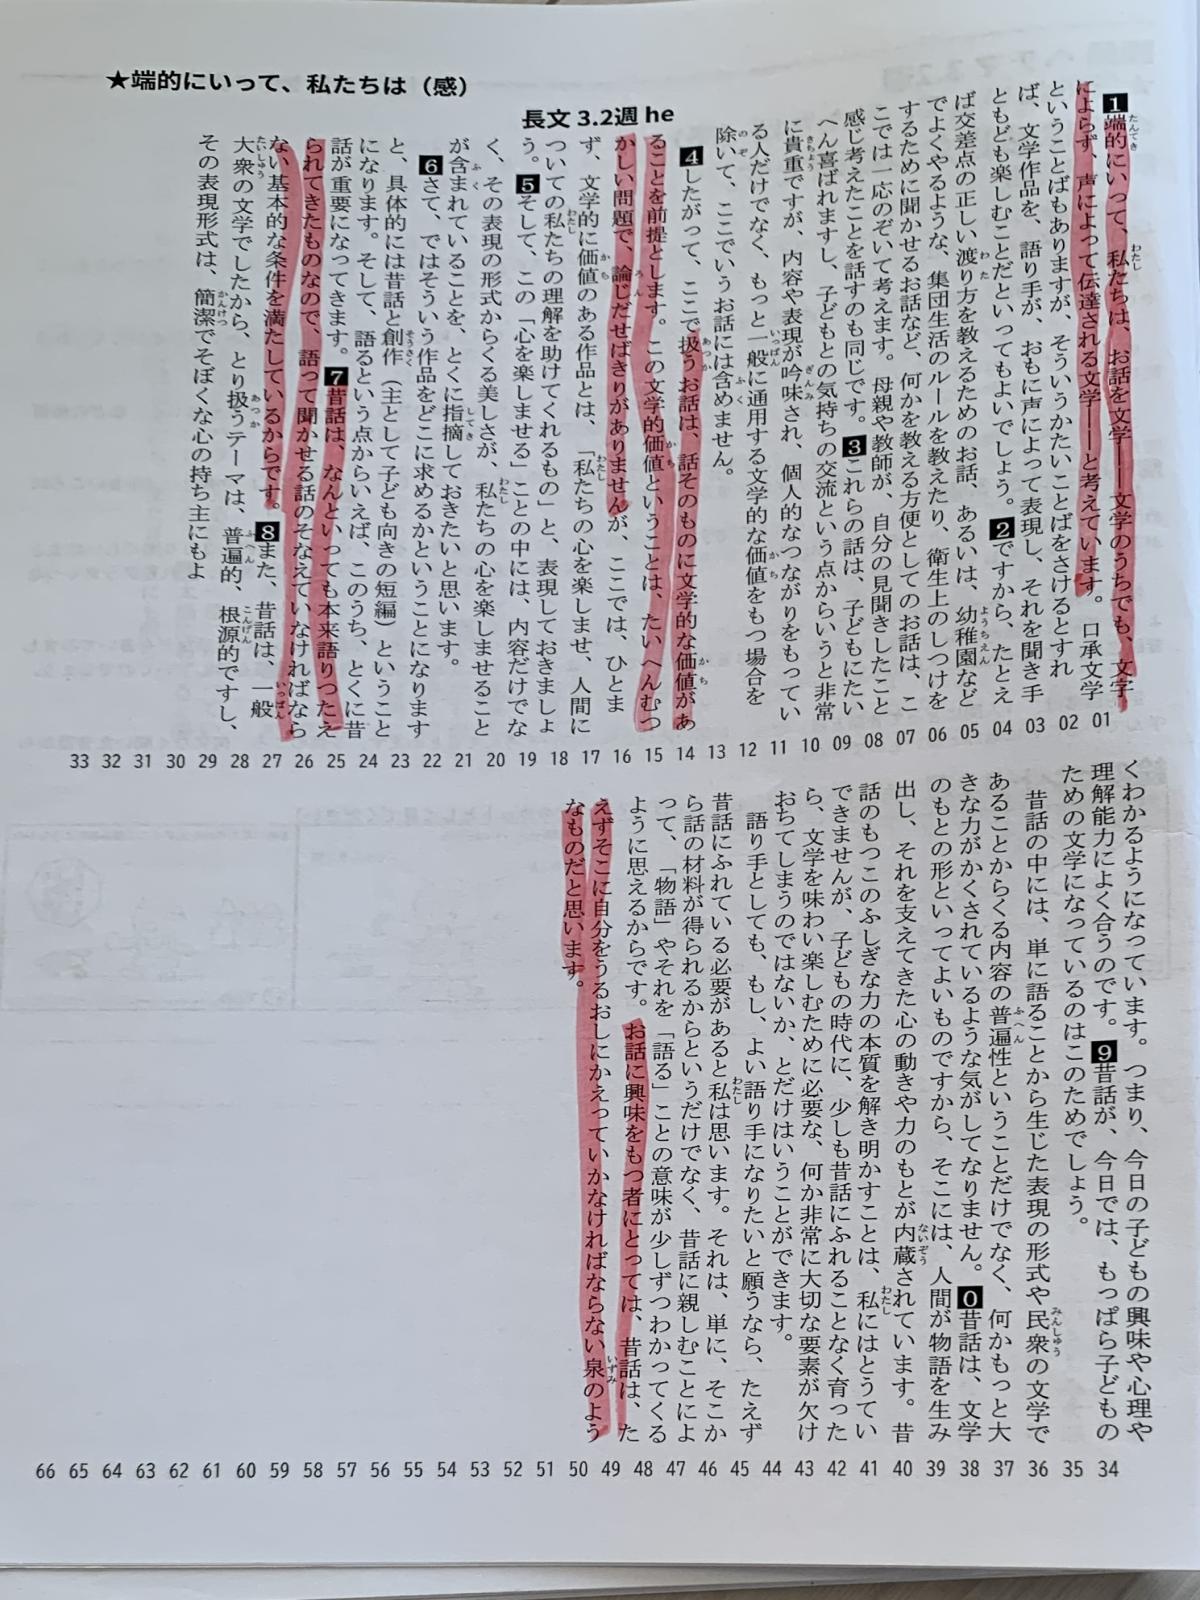 ★端的にいって、私たちは（感）
長文 3.2週 he
1端的にいって、私たちは、お話を文学――文学のうちでも、文字
によらず、声によって伝達される文学――と考えています。口承文学
ということばもありますが、そういうかたいことばをさけるとすれ
ば、文学作品を、語り手が、おもに声によって表現し、それを聞き手
ともども楽しむことだといってもよいでしょう。2ですから、たとえ
ば交差点の正しい渡り方を教えるためのお話、あるいは、幼稚園など
でよくやるような、集団生活のルールを教えたり、衛生上のしつけを
するために聞かせるお話など、何かを教える方便としてのお話は、こ
こでは一応のぞいて考えます。母親や教師が、自分の見聞きしたこと
感じ考えたことを話すのも同じです。3これらの話は、子どもにたい
へん喜ばれますし、子どもとの気持ちの交流という点からいうと非常
に貴重ですが、内容や表現が吟味され、個人的なつながりをもってい
る人だけでなく、もっと一般に通用する文学的な価値をもつ場合を
除いて、ここでいうお話には含めません。
4したがって、ここで扱うお話は、話そのものに文学的な価値があ
ることを前提とします。この文学的価値ということは、たいへんむつ
かしい問題で、論じだせばきりがありませんが、ここでは、ひとま
ず、文学的に価値のある作品とは、「私たちの心を楽しませ、人間に
ついての私たちの理解を助けてくれるもの」と、表現しておきましょ
う。5そして、この「心を楽しませる」ことの中には、内容だけでな
く、その表現の形式からくる美しさが、私たちの心を楽しませること
が含まれていることを、とくに指摘しておきたいと思います。
6さて、ではそういう作品をどこに求めるかということになります
と、具体的には昔話と創作（主として子ども向きの短編）ということ
になります。そして、語るという点からいえば、このうち、とくに昔
話が重要になってきます。7昔話は、なんといっても本来語りつたえ
られてきたものなので、語って聞かせる話のそなえていなければなら
ない基本的な条件を満たしているからです。8また、昔話は、一般
大衆の文学でしたから、とり扱うテーマは、普遍的、根源的ですし、
その表現形式は、簡潔でそぼくな心の持ち主にもよ
01 02 03 04 05 06 07 08 09 10 11 12 13 14 15 16 17 18 19 20 21 22 23 24 25 26 27 28 29 30 31 32 33
くわかるようになっています。つまり、今日の子どもの興味や心理や
理解能力によく合うのです。9昔話が、今日では、もっぱら子どもの
ための文学になっているのはこのためでしょう。
昔話の中には、単に語ることから生じた表現の形式や民衆の文学で
あることからくる内容の普遍性ということだけでなく、何かもっと大
きな力がかくされているような気がしてなりません。0昔話は、文学
のもとの形といってよいものですから、そこには、人間が物語を生み
出し、それを支えてきた心の動きや力のもとが内蔵されています。昔
話のもつこのふしぎな力の本質を解き明かすことは、私にはとうてい
できませんが、子どもの時代に、少しも昔話にふれることなく育った
ら、文学を味わい楽しむために必要な、何か非常に大切な要素が欠け
おちてしまうのではないか、とだけはいうことができます。
語り手としても、もし、よい語り手になりたいと願うなら、たえず
昔話にふれている必要があると私は思います。それは、単に、そこか
ら話の材料が得られるからというだけでなく、昔話に親しむことによ
って、「物語」やそれを「語る」ことの意味が少しずつわかってくる
ように思えるからです。お話に興味をもつ者にとっては、昔話は、た
えずそこに自分をうるおしにかえっていかなければならない泉のよう
なものだと思います。
34 35 36 37 38 39 40 41 42 43 44 45 46 47 48 49 50 51 52 53 54 55 56 57 58 59 60 61 62 63 64 65 66